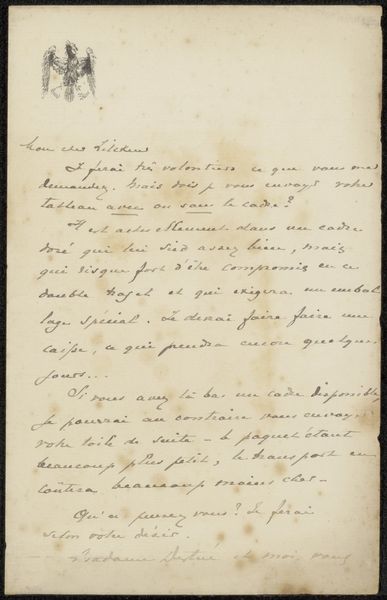 Mon cher Zilcken
Je ferai très volontiers ce que vous me
demandez. Mais dois je vous envoyer votre
tableau avec ou sans le cadre?
Il est actuellement dans un cadre
doré qui lui sied assez bien, mais
qui risque fort d'être compromis en ce
double trajet et qui exigera un embal
lage spécial. Je devrai faire faire une
caisse, ce qui prendra encore quelques
jours...
Si vous avez là bas un cadre disponible,
je pourrai au contraire vous envoyer
votre toile de suite – le paquet étant
beaucoup plus petit, le transport en
coûtera beaucoup moins cher –
Qu'en pensez vous? Je ferai
selon votre désir.
Madame Destrée et moi, vous